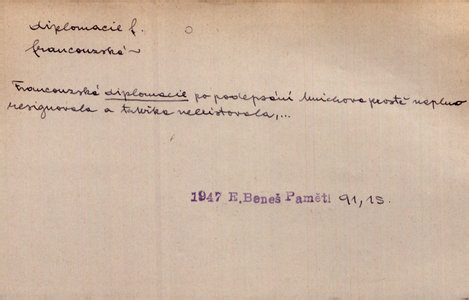 diplomacie f.
francouzská ~
Francouzská diplomacie po podepsání Mnichova prostě naplno
resignovala a takřka neexistovala,...
1947 E. Beneš Paměti 91, 15.